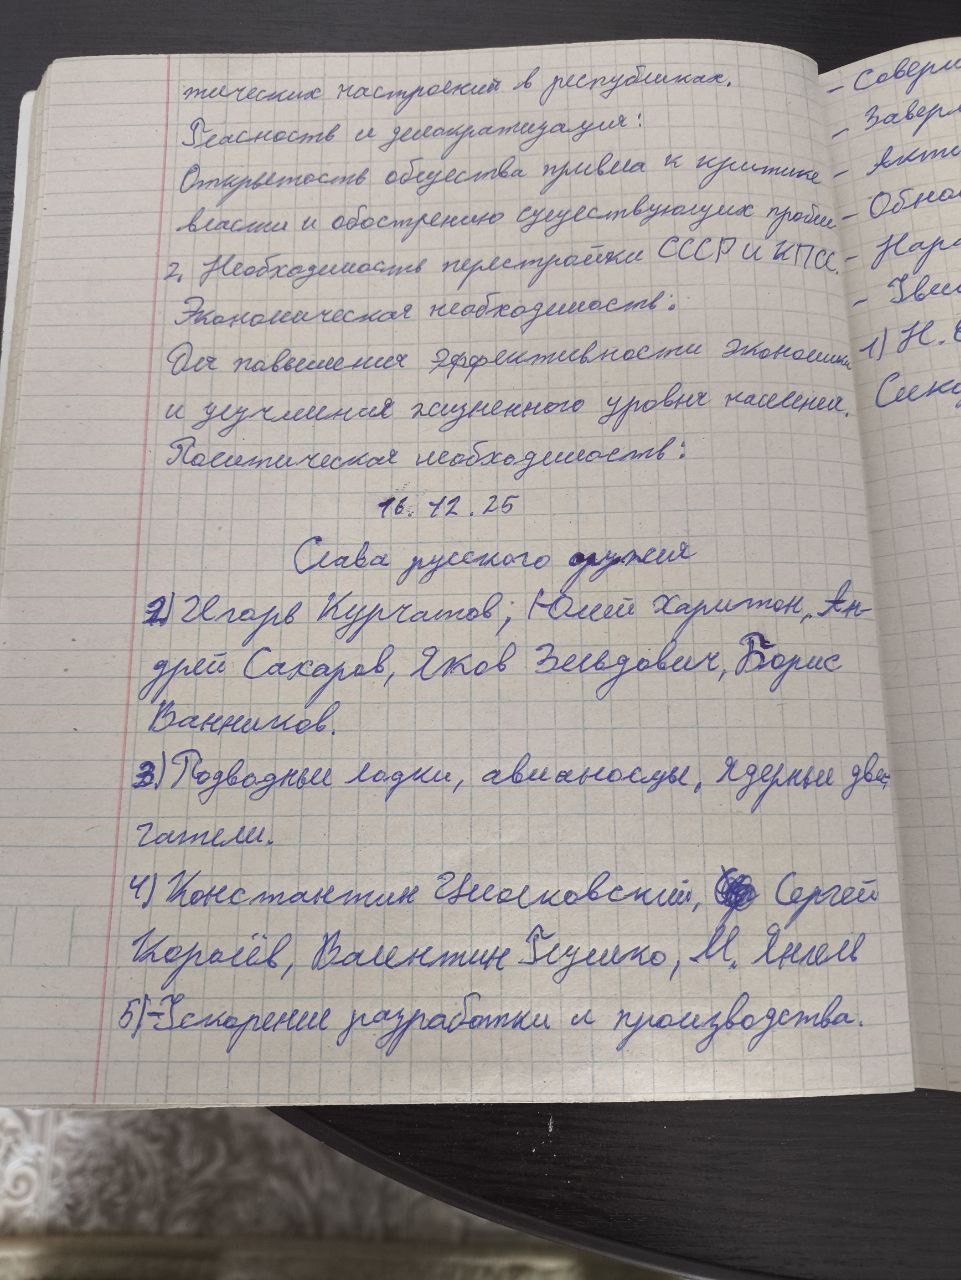 тических настроений в республиках.
Гласность и демократизация:
Открытость общества привела к критике
власти и обострению существующих пробле
2. Необходимость перестройки СССР и КПСС.
Экономическая необходимость:
Для повышения эффективности экономики
и улучшения жизненного уровня населения.
Политическая необходимость:
16.12.25
Слава русского оружия
2) Игорь Курчатов; Юлий Харитон, Ан-
дрей Сахаров, Яков Зельдович, Борис
Ванников.
3) Подводные лодки, авианосцы, ядерные дви-
гатели.
4) Константин Циолковский, Сергей
Королёв, Валентин Глушко, М. Янгель
5) -Ускорение разработки и производства.
- Соверш
- Заверш
- Акти
- Обно
- Наро
-
1) Н. С